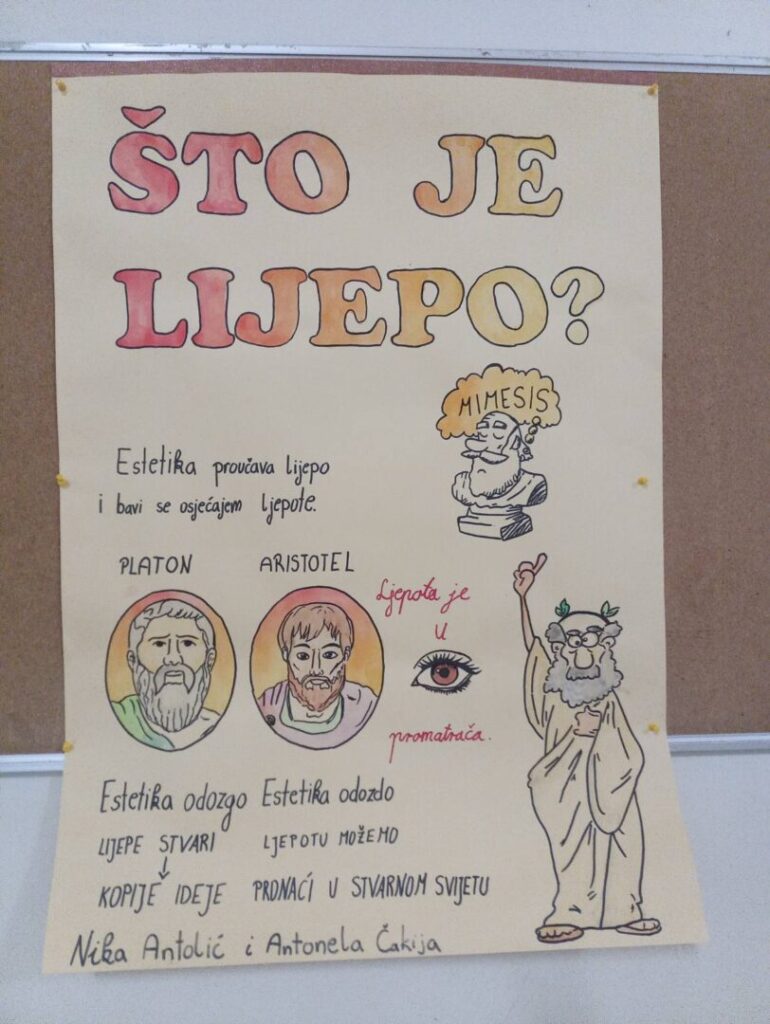 ŠTO JE
LIJEPO?
MIMESIS
Estetika proučava lijepo
i bavi se osjećajem ljepote.
PLATON
ARISTOTEL
Ljepota je
u
promatrača.
Estetika odozgo
LIJEPE STVARI
↓
KOPIJE IDEJE
Estetika odozdo
LJEPOTU MOŽEMO
PRONAĆI U STVARNOM SVIJETU
Nika Antolić i Antonela Čakija